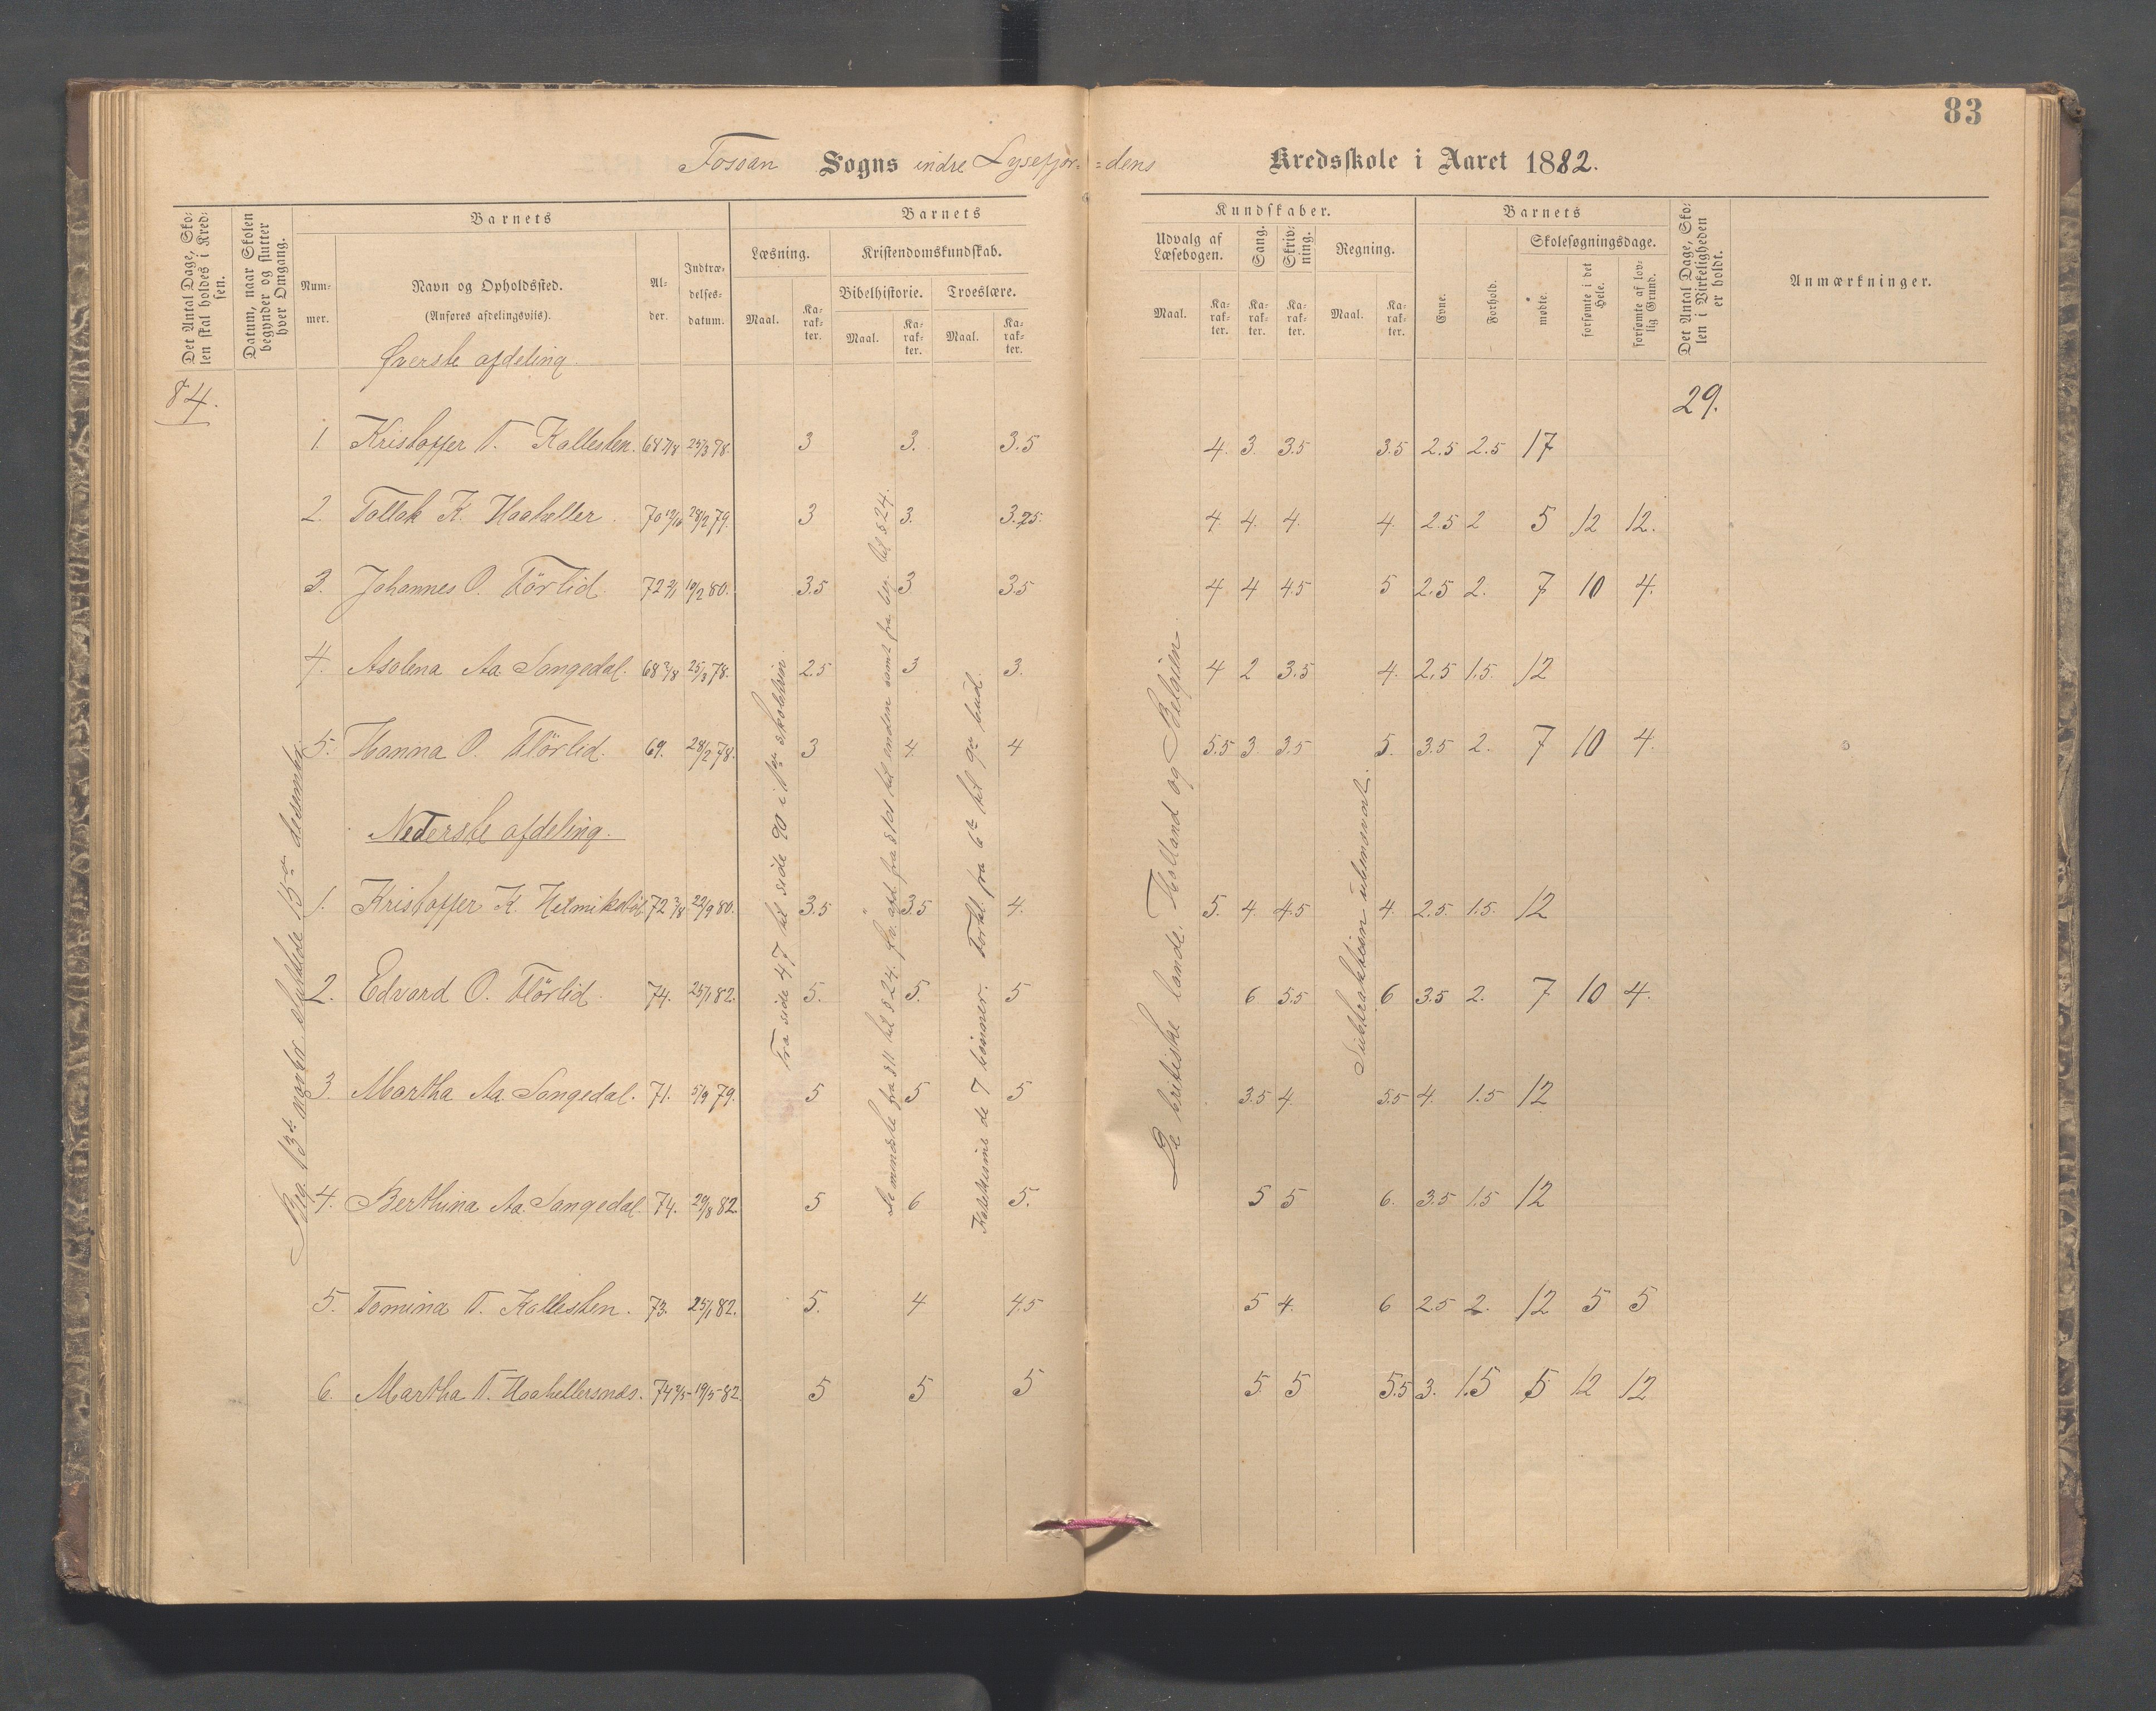 83
Fossan Sogns indre Lysefjor= =dens Kredsskole i Aaret 1882.
Det Antal Dage, Sko-
len skal holdes i Kred-
sen.
Datum, naar Skolen
begynder og slutter
hver Omgang.
Barnets
Num-
mer.
Navn og Opholdssted.
(Anføres afdelingsviis).
Al-
der.
Indtræ-
delses-
datum.
Barnets
Læsning.
Maal.
Ka-
rak-
ter.
Kristendomskundskab.
Bibelhistorie.
Maal.
Ka-
rak-
ter.
Troeslære.
Maal.
Ka-
rak-
ter.
Kundskaber.
Udvalg af
Læsebogen.
Maal.
Ka-
rak-
ter.
Sang.
Ka-
rak-
ter.
Skriv-
ning.
Ka-
rak-
ter.
Regning.
Maal.
Ka-
rak-
ter.
Barnets
Evne.
Forhold.
Skolesøgningsdage.
mødte.
forsømte i det
Hele.
forsømte af lov-
lig Grund.
Det Antal Dage, Sko-
len i Virkeligheden
er holdt.
Anmærkninger.
Øverste afdeling.
84. 29.
1. Kristoffer T. Kallesten. 68 7/8 25/3 78. 3 3. 3.5 4. 3. 3.5 3.5 2.5 2.5 17
2. Tollak K. Haaheller. 70 28/2 79. 3 3. 3.25. 4. 4. 4. 4. 2.5 2 5 12 12.
3. Johannes O. Flörlid. 72 10/2 80. 3.5 3 3.5 4 4 4.5 5 2.5 2. 7 10 4.
4. Asolena Aa. Songedal. 68 25/3 78. 2.5 3 3. 4 2 3.5 4. 2.5 1.5. 12
5. Hanna O. Flörlid. 69. 28/2 78. 3 4. 4 5.5 3. 3.5 5. 3.5 2. 7 10 4.
Nederste afdeling.
1. Kristoffer K. 72 29/9 80. 3.5 3.5 4. 5. 4. 4.5 4. 2.5. 1.5. 12
2. Edvard O. Flörlid. 74. 25/1 82. 5. 5. 5 6 5.5 6 3.5 2. 7 10 4.
3. Martha Aa. Songedal. 71. 5/9 79. 5 5 5 3.5 4. 5.5 4. 1.5 12
4. Berthina Aa. Songedal. 74. 29/8 82. 5 6 5. 5 5 6. 3.5 1.5 12
5. Tomina T. Kallesten. 73. 25/1 82. 5. 4 4.5 5 4. 6 2.5 2. 12 5 5
6. Martha T. Haahellersnæs. 74 2/5 19/5 82. 5 5 5 5. 5 5.5 3. 1.5 5 12 12
Beg. 13de marts sluttede 15de desember.
Fra side 47 til side 90 i skoleb.
De mindste fra § 11 til § 24. Øv. afd. fra § 101 til enden samt fra beg. til § 24.
Katekisme de 7 bönner. Forkl. fra 6te til 9de bud.
De britiske lande, Holland og Belgien.
Subtraktion ubenævnt.